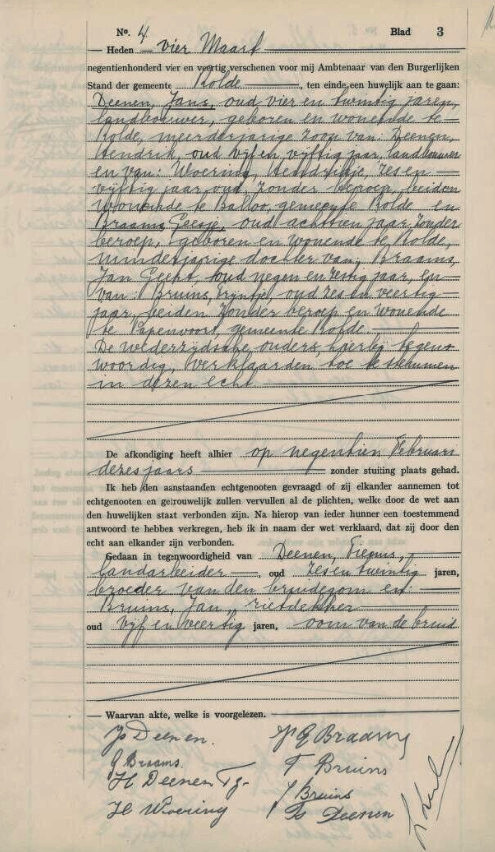 No. 4 Blad 3
Heden vier Maart
negentienhonderd vier en veertig verschenen voor mij Ambtenaar van den Burgerlijken
Stand der gemeente Rolde, ten einde een huwelijk aan te gaan:
Deenen, Jans, oud vier en twintig jaren,
landbouwer, geboren en wonende te
Rolde, meerderjarige zoon van: Deenen,
Hendrik, oud vijf en vijftig jaar, landbouwer
en van: Woering, zes en
vijftig jaar oud, zonder beroep, beiden
wonende te Balloo, gemeente Rolde en
Braams, Geesje, oud achttien jaar, zonder
beroep, geboren en wonende te Rolde,
minderjarige dochter van: Braams,
Jan Geert, oud negen en zestig jaar, en
van: Bruins, oud zes en veertig
jaar, beiden zonder beroep en wonende
te Papenvoort, gemeente Rolde.
De wederzijdsche ouders, hierbij tegen-
woordig, verklaarden toe te stemmen
in dezen echt
De afkondiging heeft alhier op negentien Februari
dezes jaars zonder stuiting plaats gehad.
Ik heb den aanstaanden echtgenooten gevraagd of zij elkander aannemen tot
echtgenooten en getrouwelijk zullen vervullen al de plichten, welke door de wet aan
den huwelijken staat verbonden zijn. Na hierop van ieder hunner een toestemmend
antwoord te hebben verkregen, heb ik in naam der wet verklaard, dat zij door den
echt aan elkander zijn verbonden.
Gedaan in tegenwoordigheid van Deenen,
landarbeider, oud zes en twintig jaren,
broeder van den bruidegom en
Bruins, Jan, rietdekker
oud vijf en veertig jaren, oom van de bruid
Waarvan akte, welke is voorgelezen.
Js Deenen. J G Braams
G Braams. T Bruins
H Deenen Tz. J Bruins
H Woering Deenen